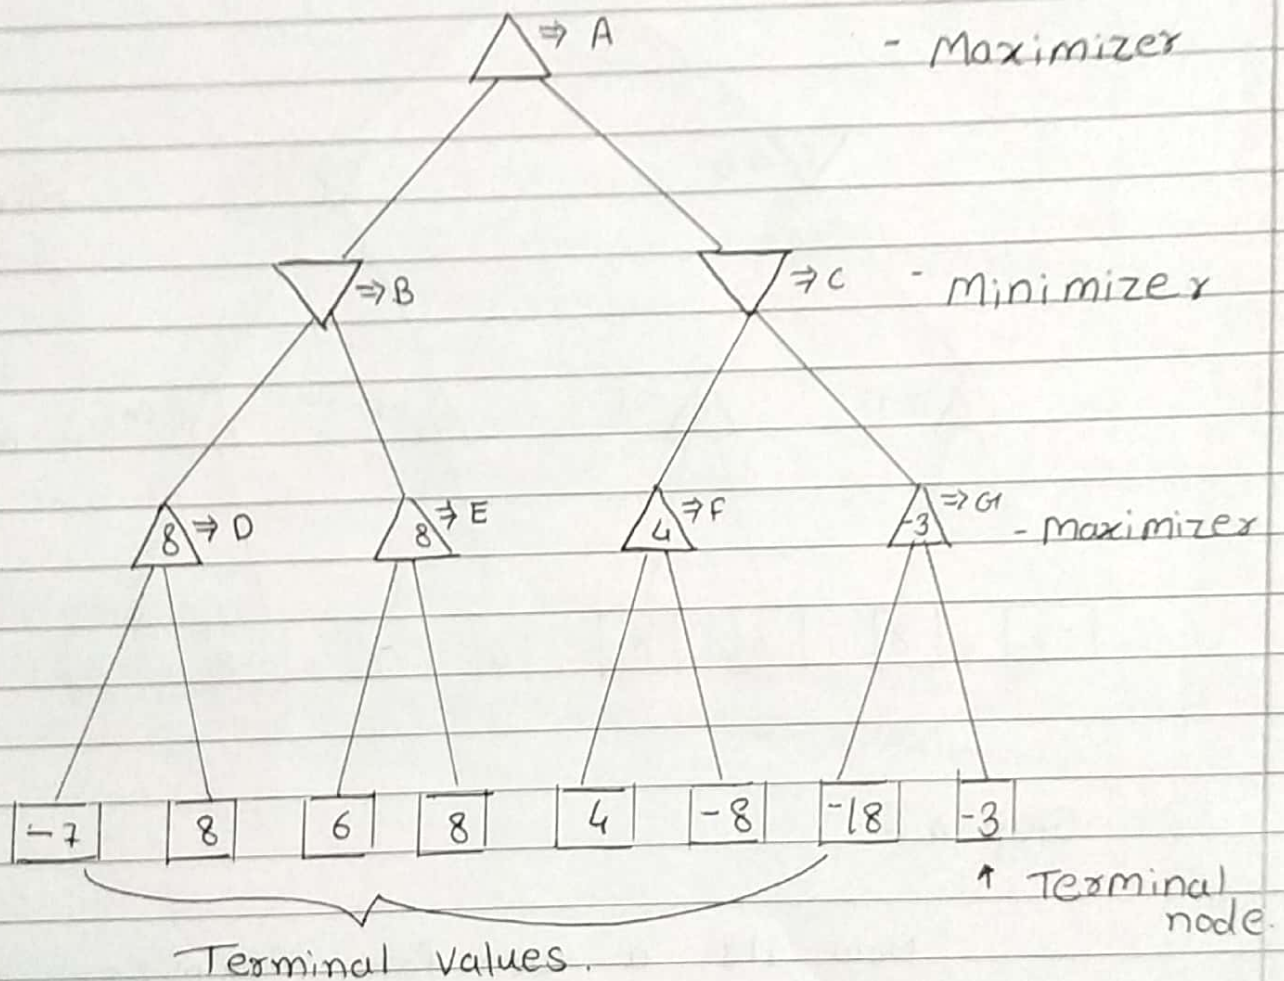 ⇒ A - Maximizer
⇒ B ⇒ C - Minimizer
8 ⇒ D 8 ⇒ E 4 ⇒ F -3 ⇒ G - maximizer
-7 8 6 8 4 -8 -18 -3
↑ Terminal
node.
Terminal values.